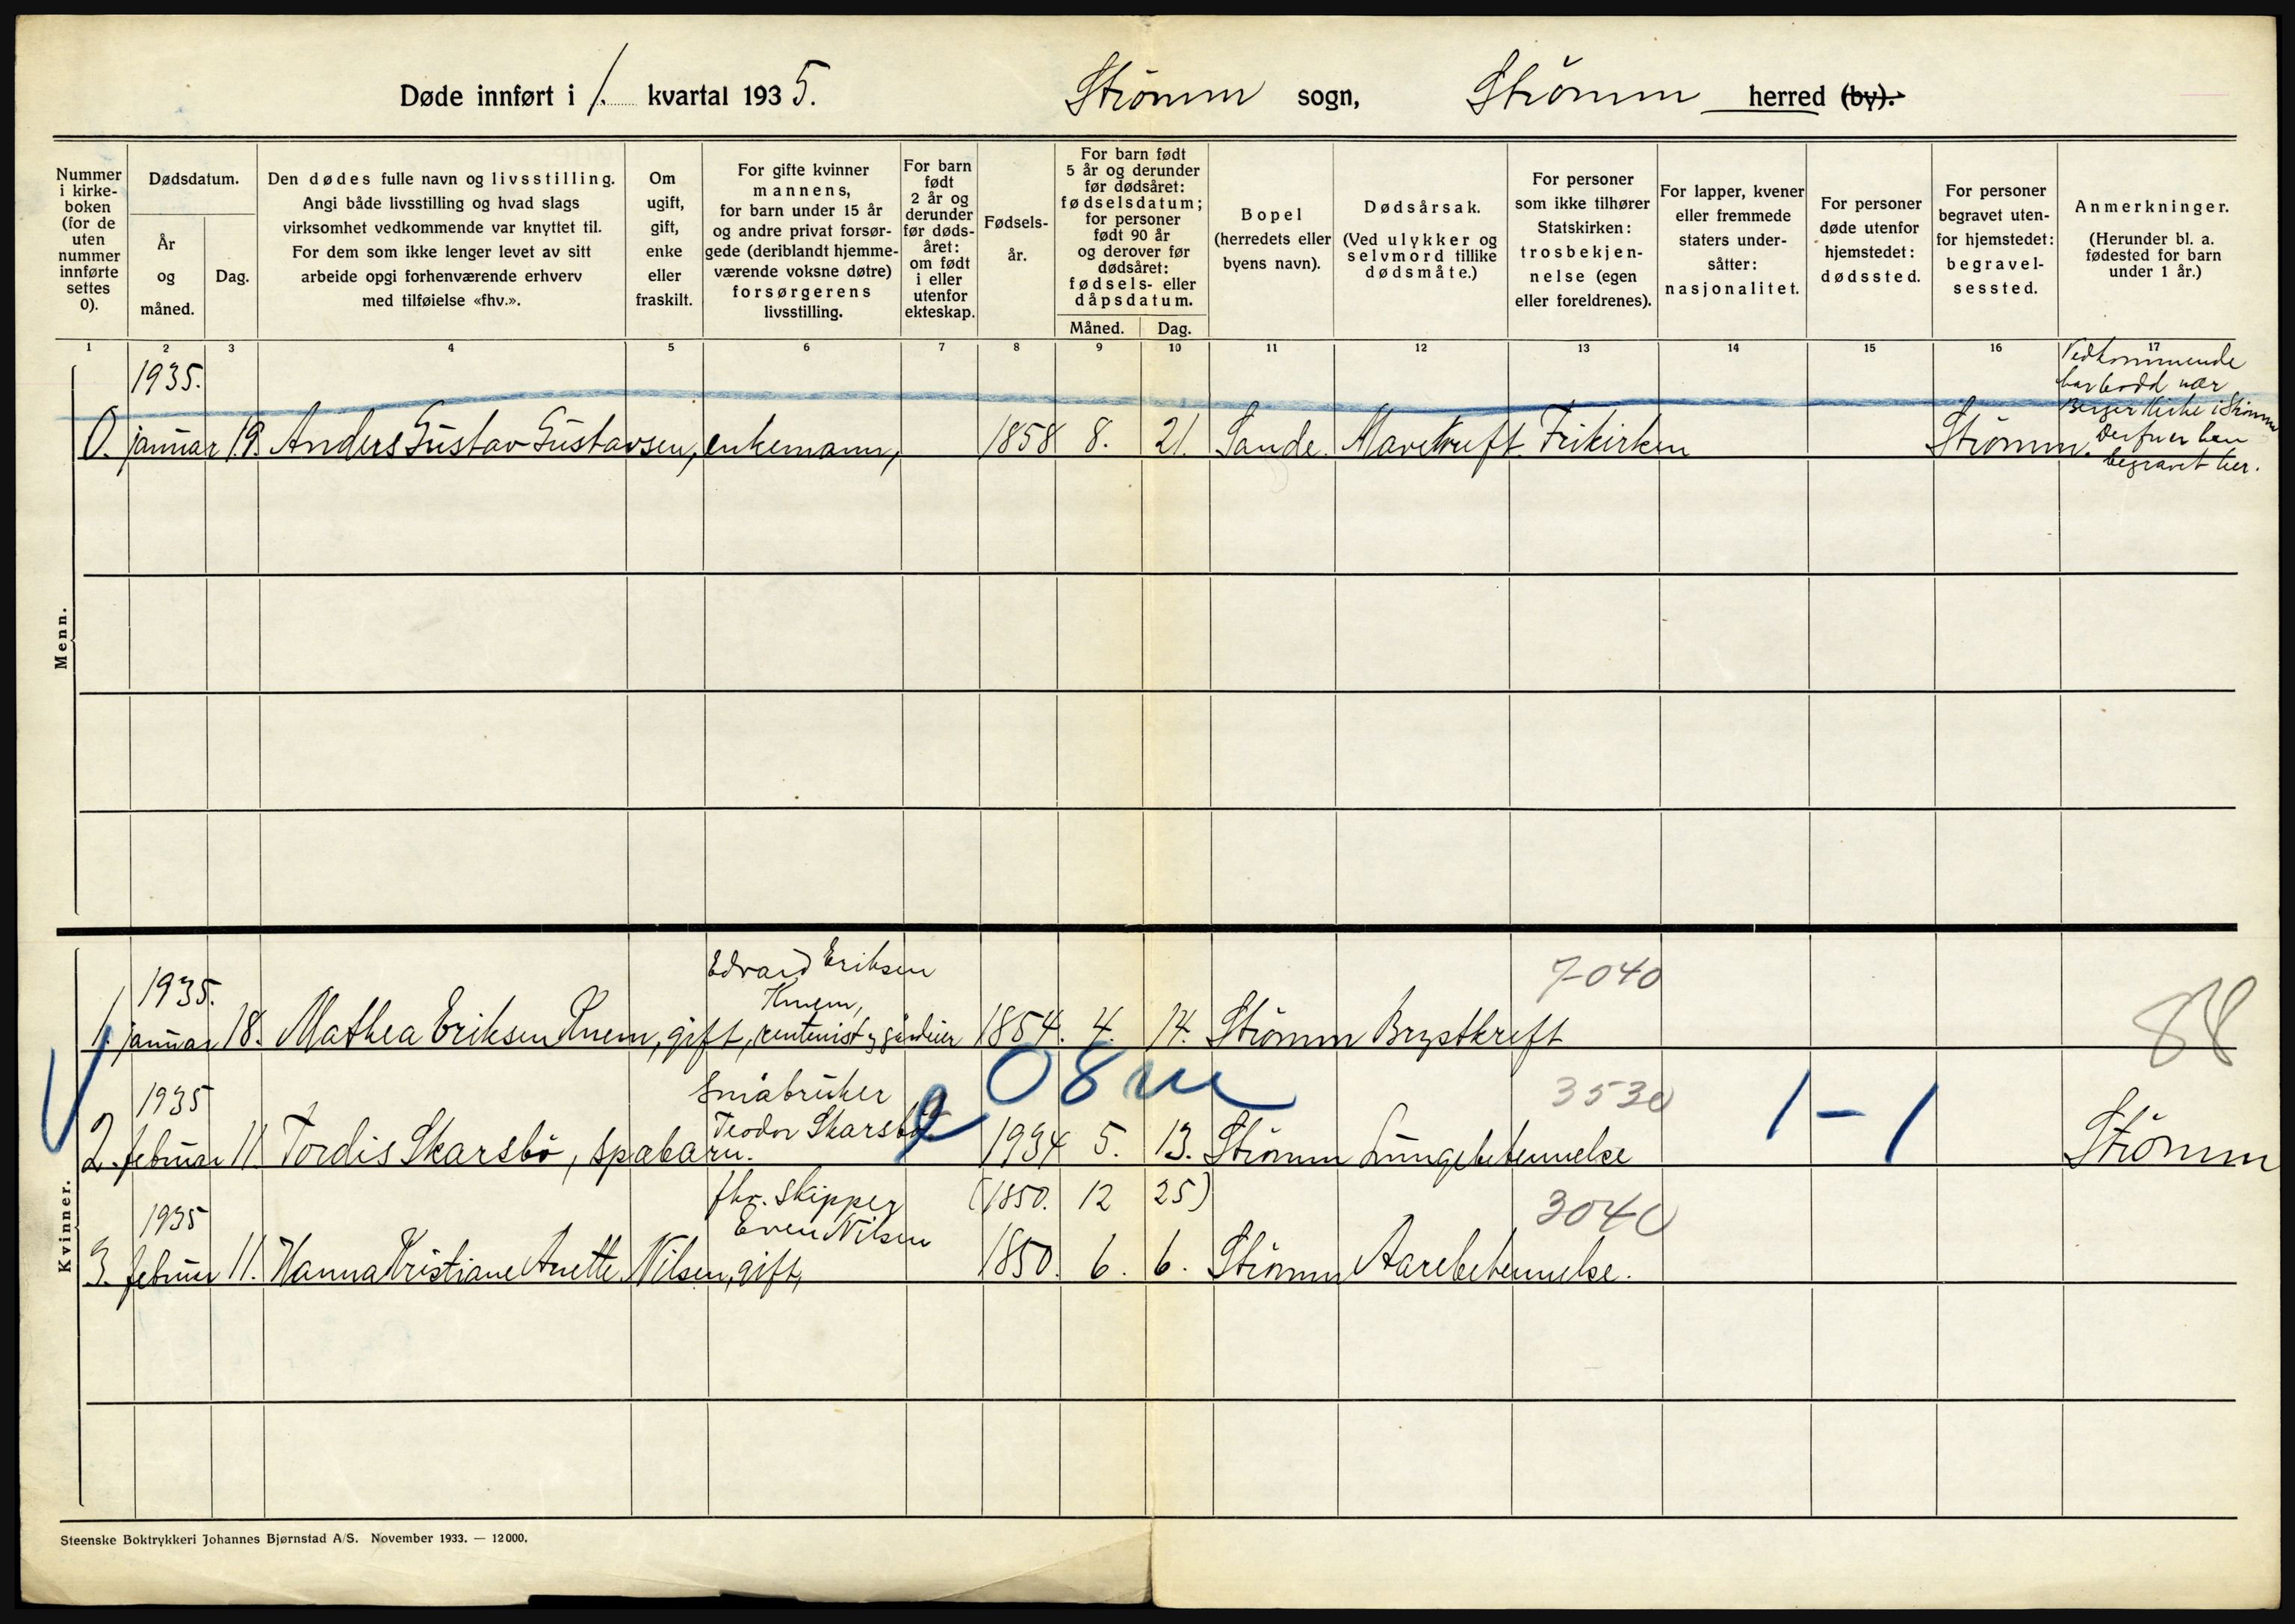 Døde innført i 1. kvartal 1935. Strömm sogn, Strömm herred (by).
Nummer i kirke- boken (for de uten nummer innførte settes 0).
Dødsdatum.
År og måned.
Dag.
Den dødes fulle navn og livsstilling.
Angi både livsstilling og hvad slags
virksomhet vedkommende var knyttet til.
For dem som ikke lenger levet av sitt
arbeide opgi forhenværende erhverv
med tilføielse «fhv.».
Om ugift, gift, enke eller fraskilt.
For gifte kvinner
mannens,
for barn under 15 år
og andre privat forsør-
gede (deriblandt hjemme-
værende voksne døtre)
forsørgerens
livsstilling.
For barn født 2 år og derunder før døds- året: om født i eller utenfor ekteskap.
Fødsels- år.
For barn født
5 år og derunder
før dødsåret:
fødselsdatum;
for personer
født 90 år
og derover før
dødsåret:
fødsels- eller
dåpsdatum.
Måned. Dag.
Bopel
(herredets eller
byens navn).
Dødsårsak.
(Ved ulykker og
selvmord tillike
dødsmåte.)
For personer
som ikke tilhører
Statskirken:
trosbekjen-
nelse (egen
eller foreldrenes).
For lapper, kvener
eller fremmede
staters under-
såtter:
nasjonalitet.
For personer
døde utenfor
hjemstedet:
dødssted.
For personer
begravet uten-
for hjemstedet:
begravel-
sessted.
Anmerkninger.
(Herunder bl. a.
fødested for barn
under 1 år.)
1 2 3 4 5 6 7 8 9 10 11 12 13 14 15 16 17
Menn.
1935.
Vedkommende
har bodd nær
Berger Kirke i Strömm
Derfor er han
begravet her.
0. januar 19. Anders Gustav Gustavsen, enkemann, 1858 8. 21. Sande. Mavekreft. Frikirken Strömm.
Kvinner.
1935.
Edvard Eriksen
Knem,
rentenist og gårdeier
7040
88
1. januar 18. Mathea Eriksen Knem, gift, 1854. 4. 14. Strömm Brystkreft
08
1935
Småbruker
Teodor Skarsbö.
3530
1 - 1
2. februar 11. Tordis Skarsbö, spebarn. 1934 5. 13. Strömm Lungebetennelse Strömm
1935
fhv. skipper
Even Nilsen
(1850. 12 25)
3040
3. februar 11. Hanna Kristiane Anette Nilsen, gift, 1850. 6. 6. Strömm Aarebetennelse.
Steenske Boktrykkeri Johannes Bjørnstad A/S. November 1933. — 12000.